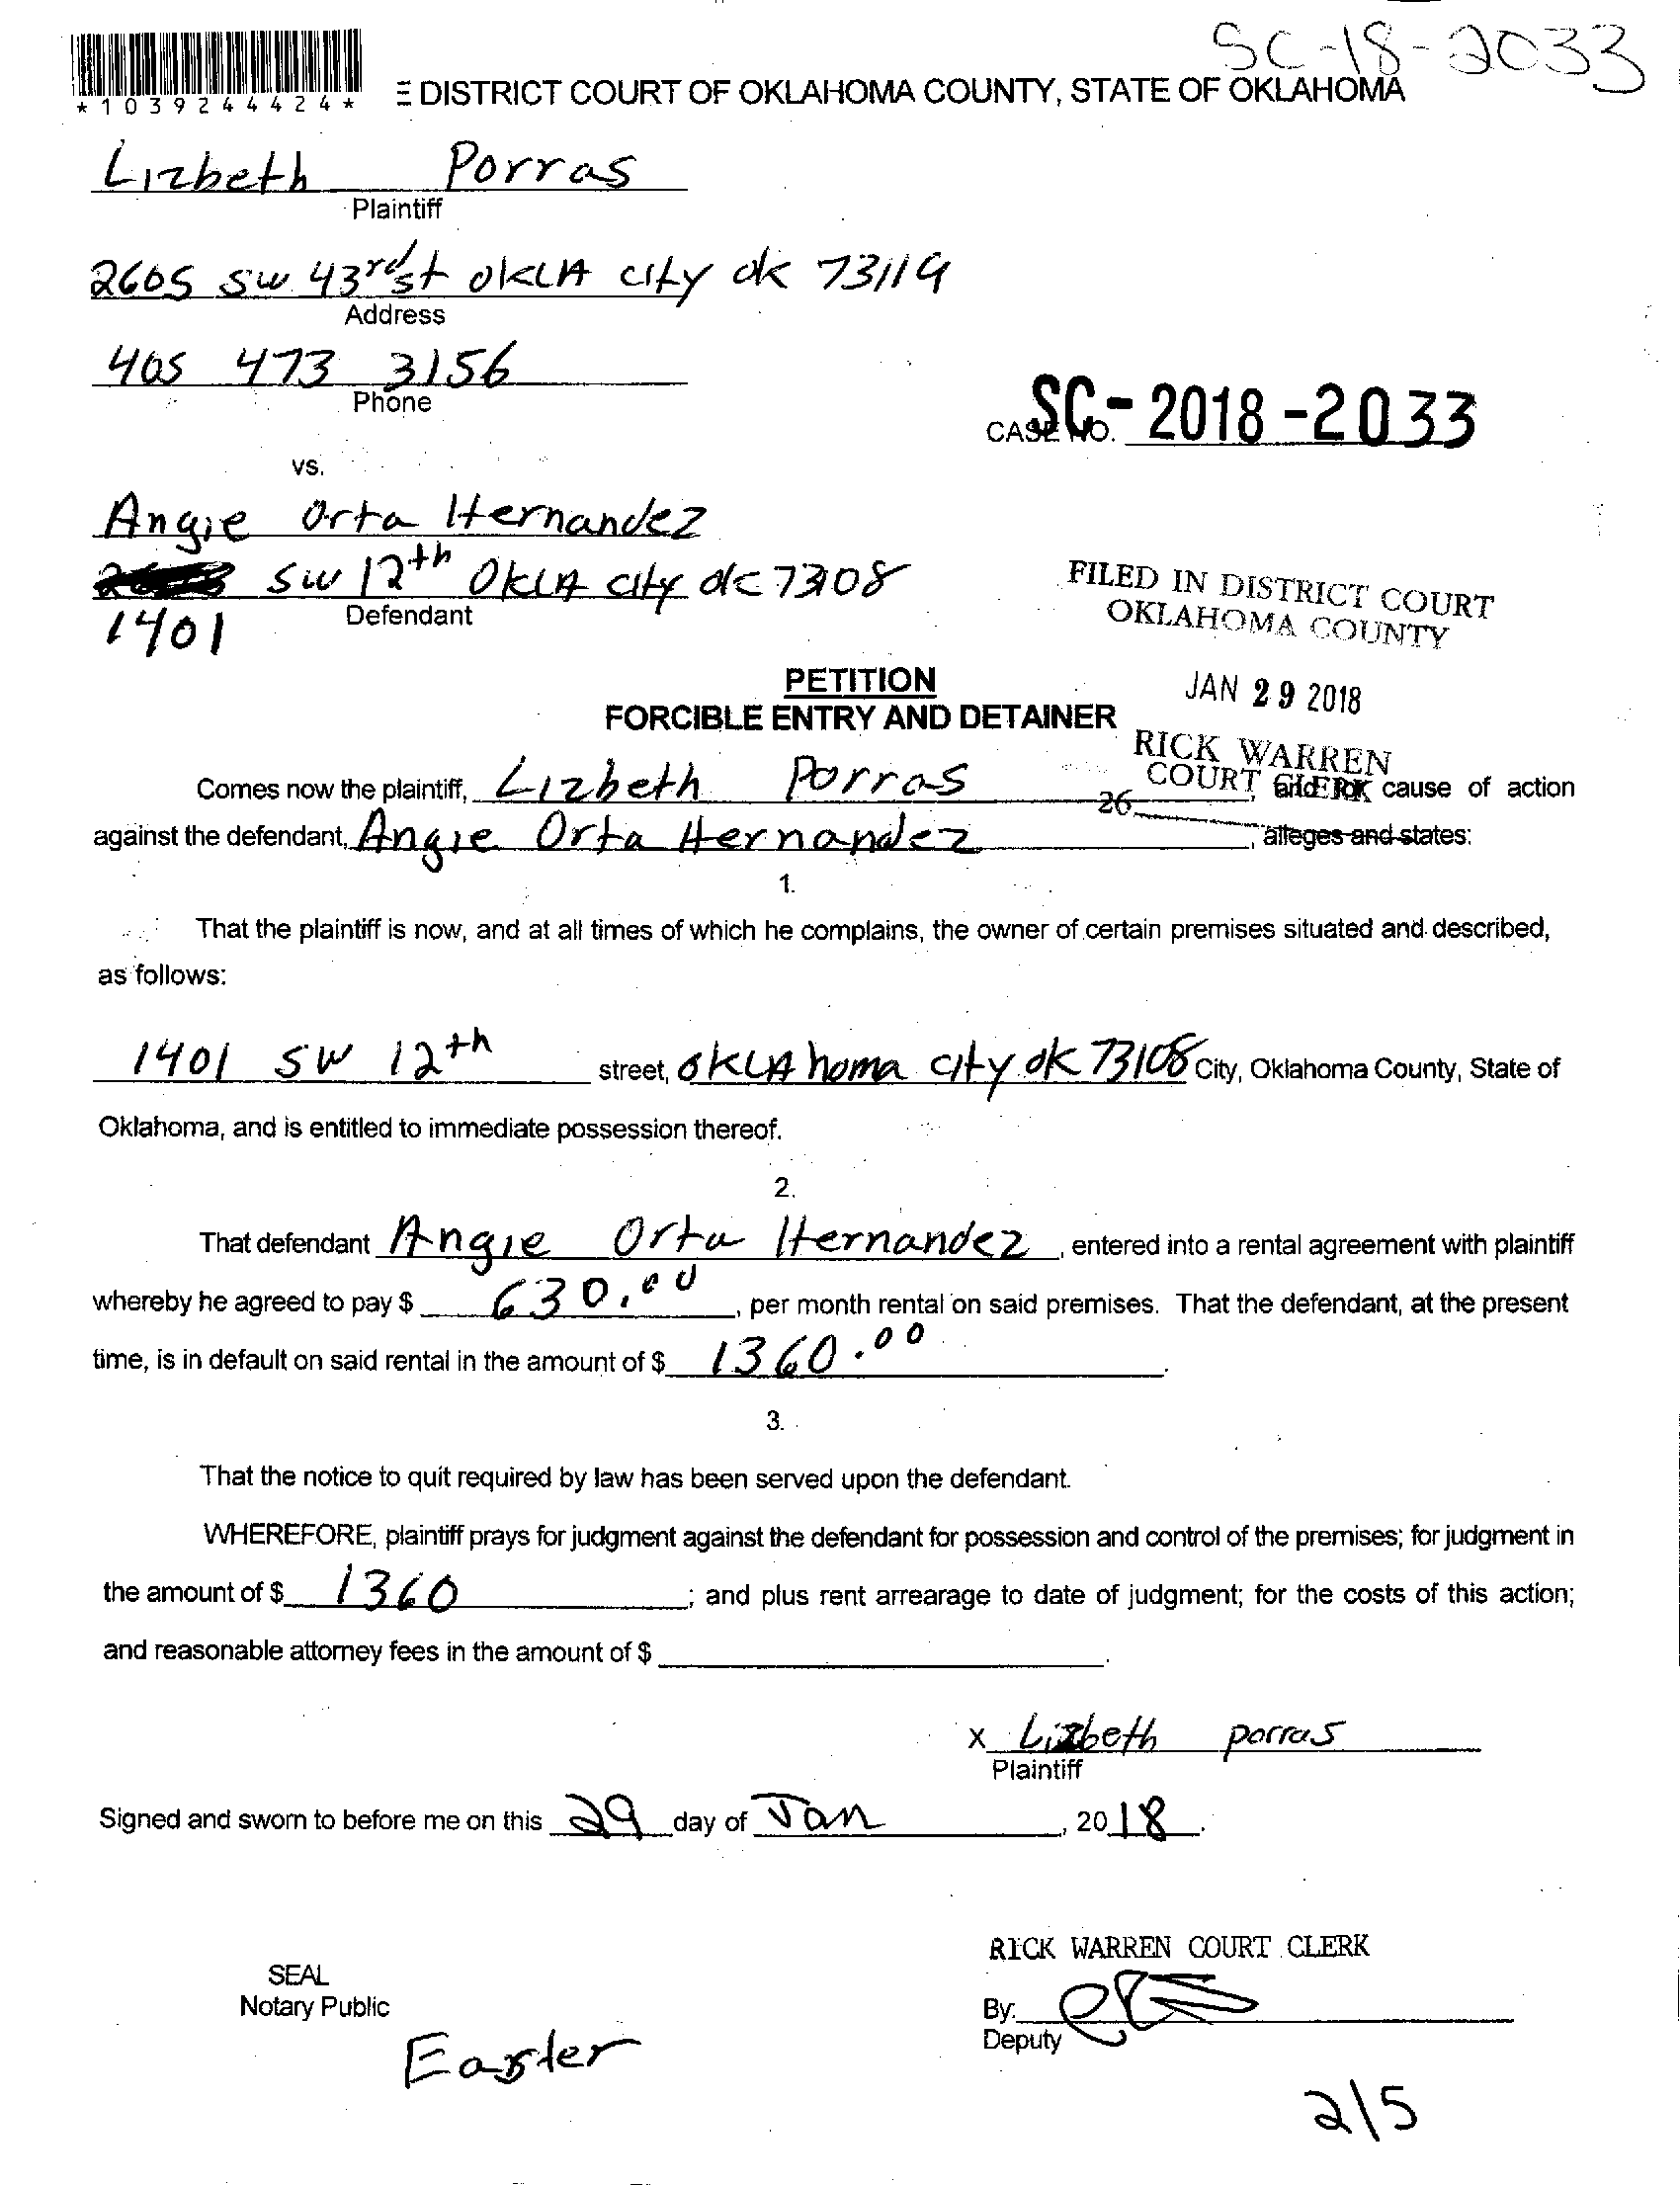 SC-18-2033
*1039244424*
E DISTRICT COURT OF OKLAHOMA COUNTY, STATE OF OKLAHOMA
Lizbeth Porras
Plaintiff
2605 SW 43rd st OKLA city ok 73119
Address
405 473 3156
Phone
CASE NO. SC-2018-2033
vs.
Angie Orta Hernandez
SW 12th OKLA city ok 73108
Defendant
1401
FILED IN DISTRICT COURT
OKLAHOMA COUNTY
JAN 29 2018
RICK WARREN
COURT CLERK
26
PETITION
FORCIBLE ENTRY AND DETAINER
Comes now the plaintiff, Lizbeth Porras, and for cause of action
against the defendant, Angie Orta Hernandez, alleges and states:
1.
That the plaintiff is now, and at all times of which he complains, the owner of certain premises situated and described,
as follows:
1401 SW 12th street, OKLAhoma city ok 73108 City, Oklahoma County, State of
Oklahoma, and is entitled to immediate possession thereof.
2.
That defendant Angie Orta Hernandez, entered into a rental agreement with plaintiff
whereby he agreed to pay $ 630.00, per month rental on said premises. That the defendant, at the present
time, is in default on said rental in the amount of $ 1360.00.
3.
That the notice to quit required by law has been served upon the defendant.
WHEREFORE, plaintiff prays for judgment against the defendant for possession and control of the premises; for judgment in
the amount of $ 1360; and plus rent arrearage to date of judgment; for the costs of this action;
and reasonable attorney fees in the amount of $ .
X Lizbeth porras
Plaintiff
Signed and sworn to before me on this 29 day of Jan, 2018.
RICK WARREN COURT CLERK
SEAL
Notary Public
By:
Deputy
Easter
2\5